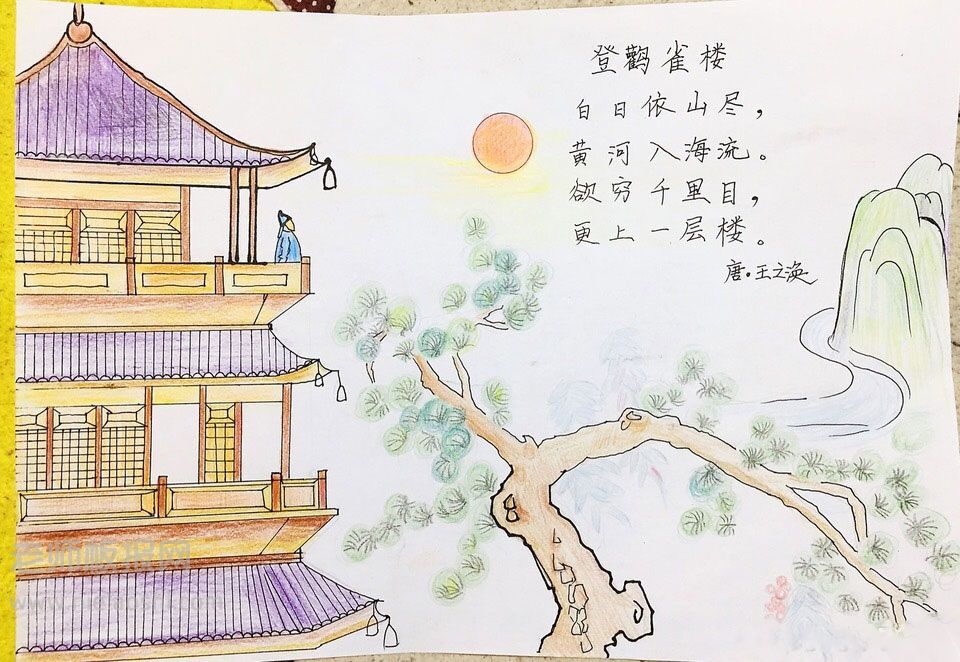 登鹳雀楼
白日依山尽，
黄河入海流。
欲穷千里目，
更上一层楼。
唐·王之涣
老师板报网